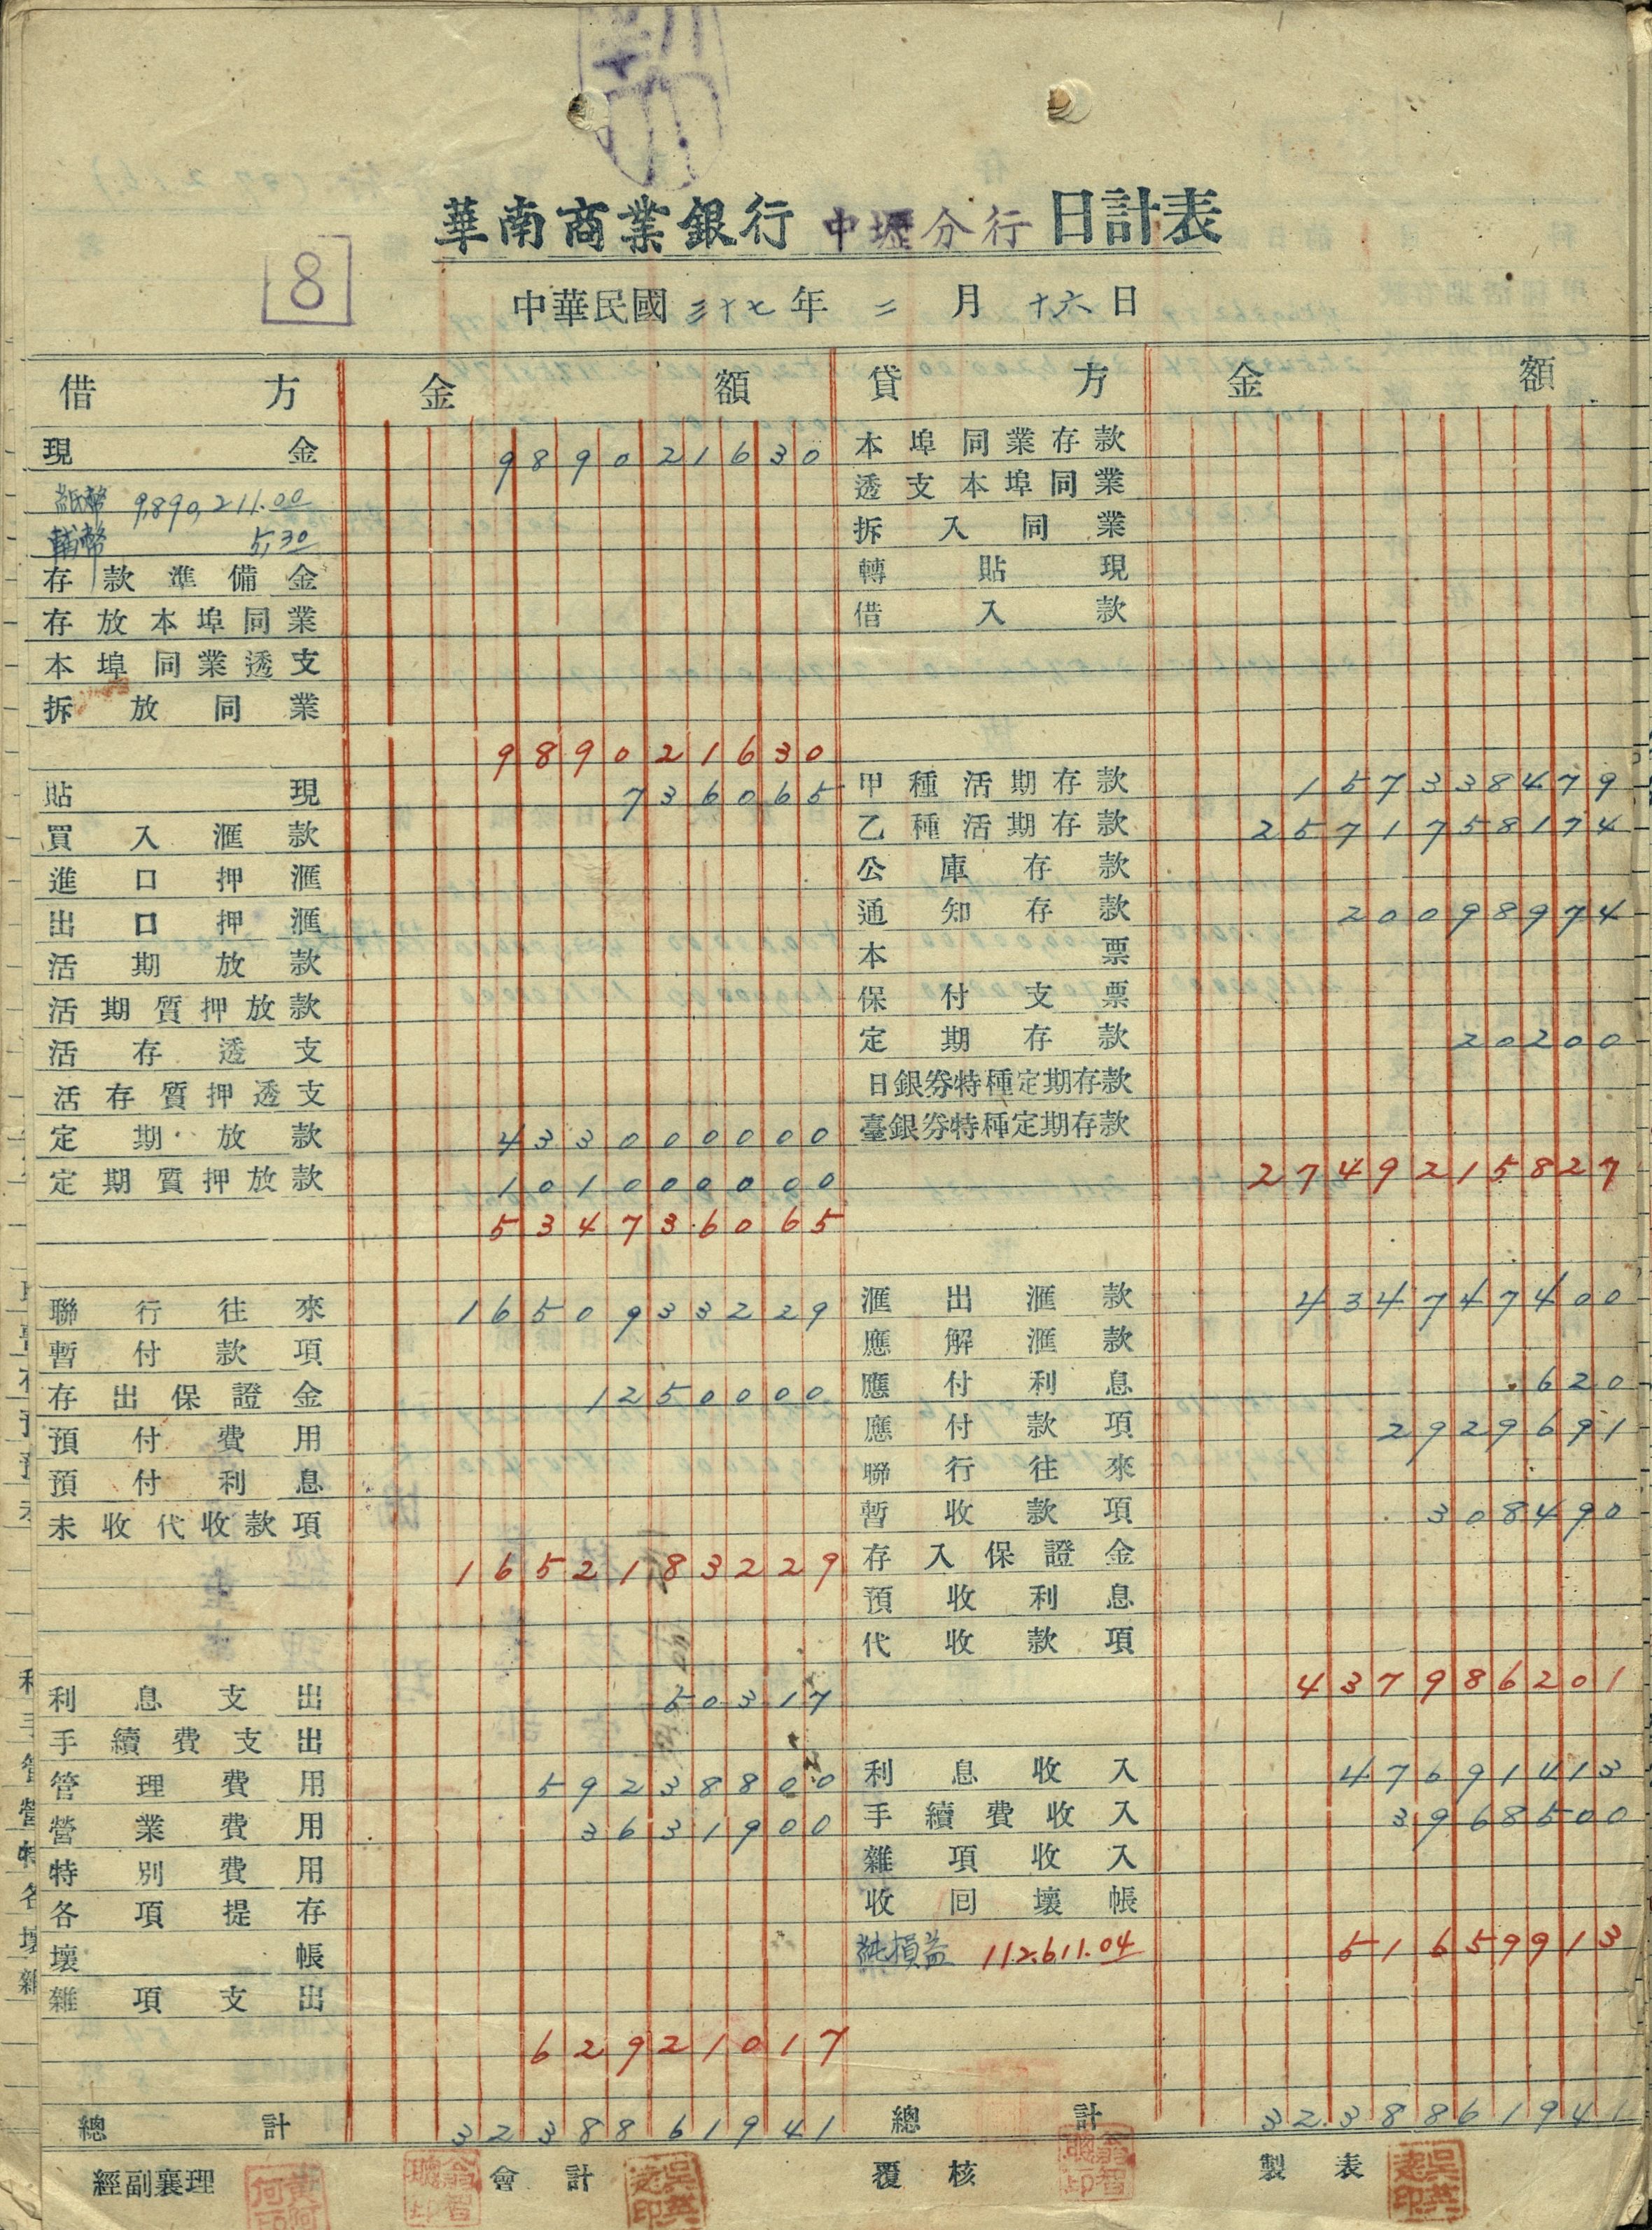 華南商業銀行 中壢分行 日計表
8
中華民國三十七年二月十六日
借方 金額
現金 989021630
紙幣 9,890,211.00
輔幣 5,30
存款準備金
存放本埠同業
本埠同業透支
拆放同業
989021630
貼現 736065
買入滙款
進口押滙
出口押滙
活期放款
活期質押放款
活存透支
活存質押透支
定期放款 433000000
定期質押放款 101000000
534736065
聯行往來 1650933229
暫付款項
存出保證金 1250000
預付費用
預付利息
未收代收款項
1652183229
利息支出 50317
手續費支出
管理費用 59238800
營業費用 3631900
特別費用
各項提存
壞帳
雜項支出
62921017
總計 3238861941
貸方 金額
本埠同業存款
透支本埠同業
拆入同業
轉貼現
借入款
甲種活期存款 157338479
乙種活期存款 2571758174
公庫存款
通知存款 20098974
本票
保付支票
定期存款 20200
日銀券特種定期存款
臺銀券特種定期存款
2749215827
滙出滙款 434747400
應解滙款
應付利息 620
應付款項 2929691
聯行往來
暫收款項 308490
存入保證金
預收利息
代收款項
437986201
利息收入 47691413
手續費收入 3968500
雜項收入
收回壞帳
純損益 112.611.04 51659913
總計 3238861941
經副襄理 會計 覆核 製表